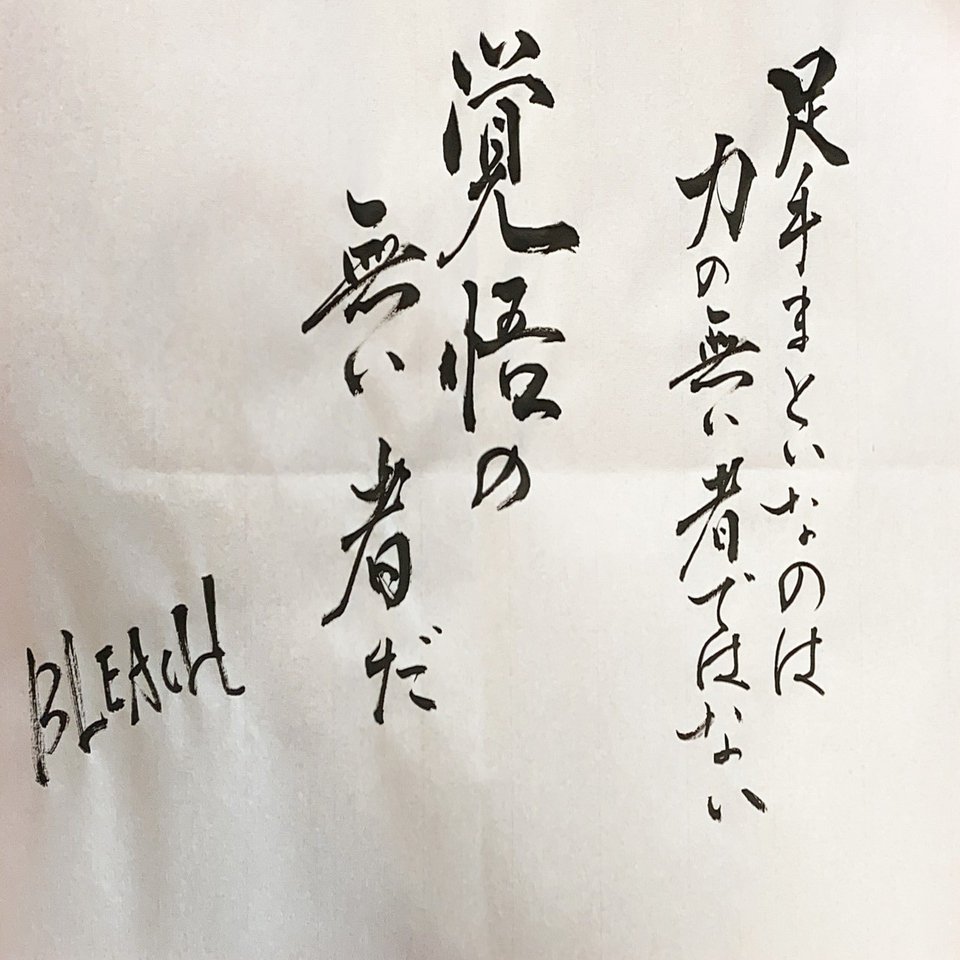 足手まといなのは
力の無い者ではない
覚悟の
無い者だ
BLEACH